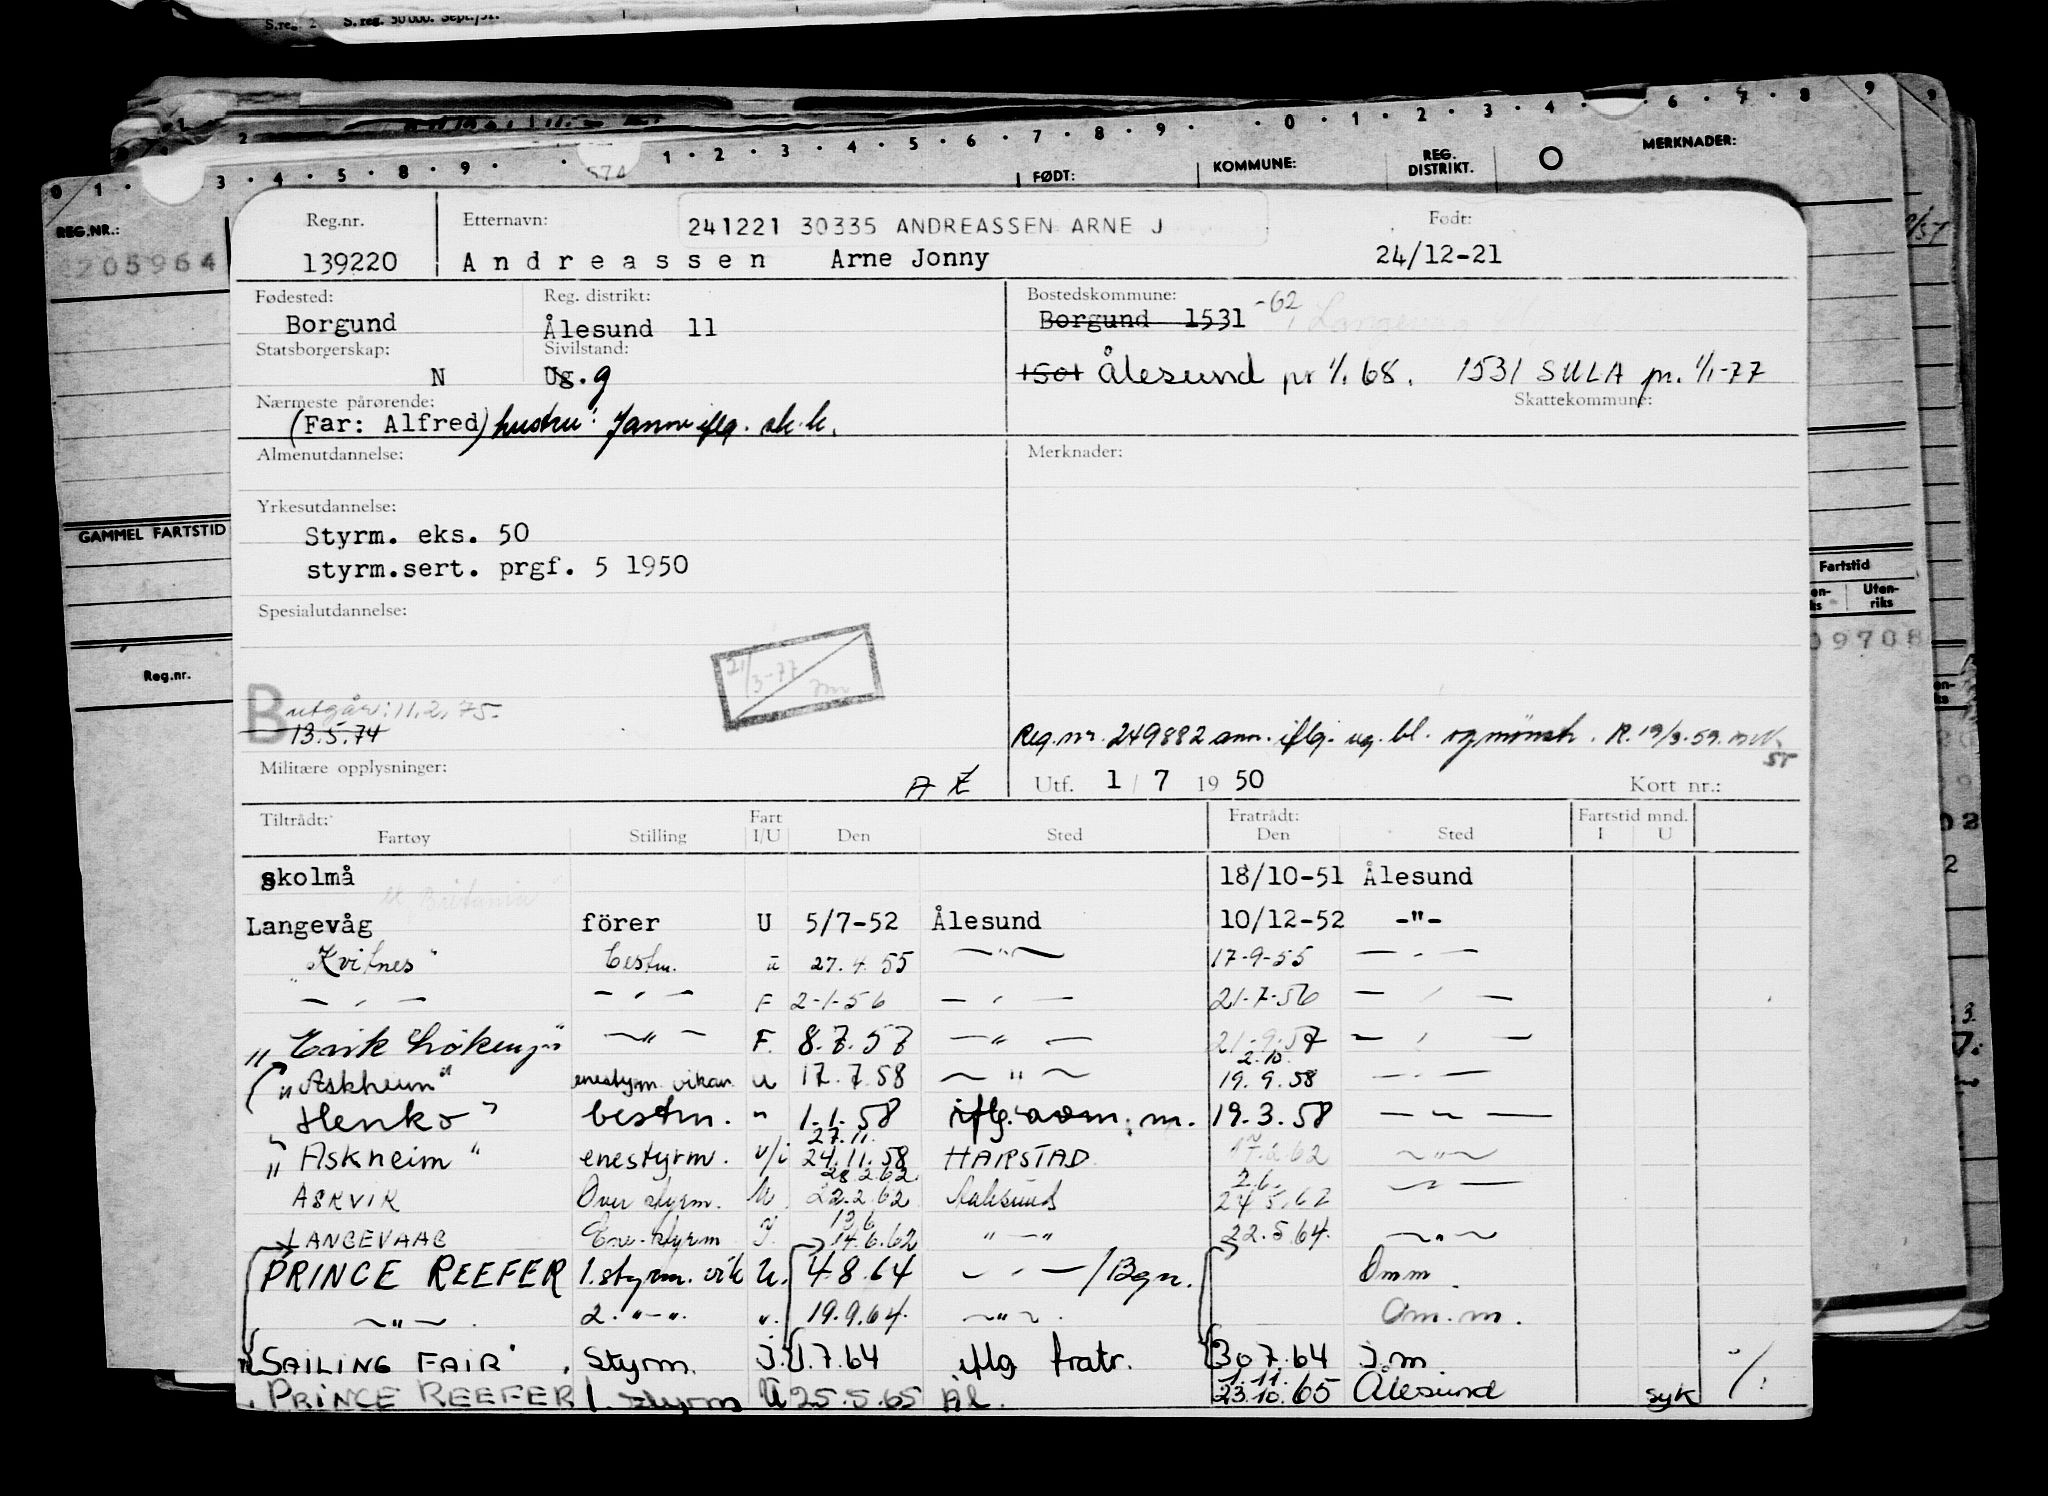 S. reg. 50 000. Sept./51.
0 1 · 3 · 4 · 5 · 8 · 9 · · 1 · 2 · 3 · 4 · 5 · 6 · 7 · 8 · 9 · · 0 · 1 · 2 · 3 · 4 · 6 · 7 · 8 9
REG.NR.:
FØDT:
KOMMUNE:
REG. DISTRIKT.
MERKNADER:
205964
GAMMEL FARTSTID
Reg.nr.
Fartstid
Uten-riks
09708
Reg.nr. Etternavn: 241221 30335 ANDREASSEN ARNE J Født:
139220 Andreassen Arne Jonny 24/12-21
Fødested: Reg. distrikt: Bostedskommune:
Borgund Ålesund 11 Borgund 1531 -62
Statsborgerskap: Sivilstand:
N Ug. g 1501 Ålesund pr 1/1 68. 1531 SULA pr. 1/1-77
Nærmeste pårørende: Skattekommune:
(Far: Alfred) hustru: iflg. sk.k.
Almenutdannelse: Merknader:
Yrkesutdannelse:
Styrm. eks. 50
styrm.sert. prgf. 5 1950
Spesialutdannelse:
21/3-77
B utgår: 11.2.75.
13.5.74
Reg.nr. 249882 ann. iflg. ug. bl. og mønstr. R. 19/3.59.
Militære opplysninger: Utf. 1/7 1950 Kort nr.:
Tiltrådt: Fart Fratrådt: Fartstid mnd.
Fartøy Stilling I/U Den Sted Den Sted I U
Skolmå 18/10-51 Ålesund
Britania
Langevåg förer U 5/7-52 Ålesund 10/12-52 -"-
"Kvitnes" bestm. u 27.4.55 -"- 17-9-55 -"-
-"- -"- F 2-1-56 -"- 21-7-56 -"-
-"- F. 8.7.57 -"- 21.9.57 -"-
2.10.
"Askheim" enestyrm. vikar. u 17.7.58 -"- 19.9.58 -"-
Henko" bestm. " 1.1.58 iflg. m. 19.3.58 -"-
27.11.
"Askheim" enestyrm. u/i 24.11.58 HARSTAD 17.2.62 -"-
28.2.62 2.6.
ASKVIK Over styrm. U. 22.2.62 Aalesund 24.5.62 -"-
13.6
LANGEVAAG Ene-styrm I. 14.6.62 " - " 22.5.64. -"-
PRINCE REEFER 1. styrm. vik U. 4.8.64 -"- /Bgn. Omm.
-"-. 2. "-". u. 19.9.64. -"-. Om.m.
"SAILING FAIR" Styrm. I. 1.7.64 iflg fratr. 30.7.64 I.m
1.11.
PRINCE REEFER 1. styrm U 25.5.65 Ål. 23.10.65 Ålesund syk